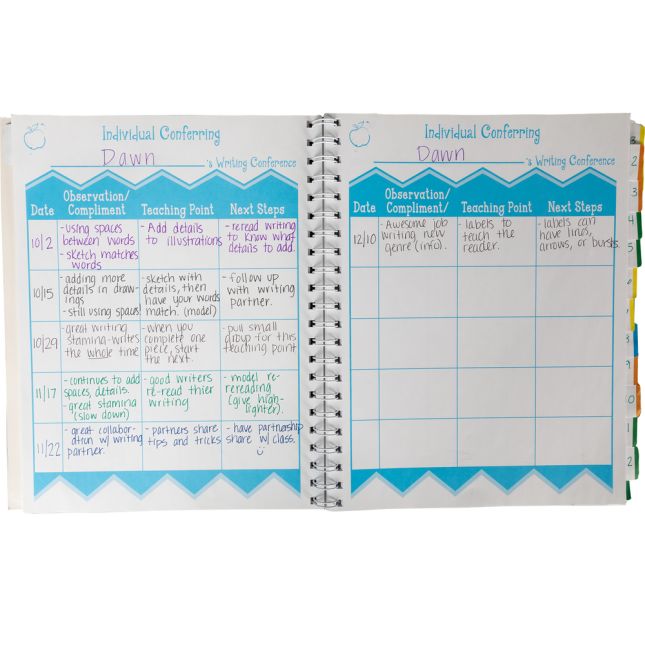 Individual Conferring
Dawn 's Writing Conference
Date Observation/ Compliment Teaching Point Next Steps
10/2
- using spaces
between words
- sketch matches
words
- Add details
to illustrations
- reread writing
to know what
details to add.
10/15
- adding more
details in draw-
ings
- still using spaces
- sketch with
details, then
have your words
match. (model)
- follow up
with writing
partner.
10/29
- great writing
stamina - writes
the whole time
- when you
complete one
piece, start
the next.
- pull small
group - for this
teaching point
11/17
- continues to add
spaces, details.
- great stamina
(slow down)
- good writers
re-read thier
writing
- model re-
rereading
(give high-
lighter).
11/22
- great collabor-
ation w/ writing
partner.
- partners share
tips and tricks
- have partnership
share w/ class.
Individual Conferring
Dawn 's Writing Conference
Date Observation/ Compliment/ Teaching Point Next Steps
12/10
- Awesome job
writing new
genre (info).
- labels to
teach the
reader.
- labels can
have lines,
arrows, or bursts.
2
4
5
6
7
8
9
0
1
2